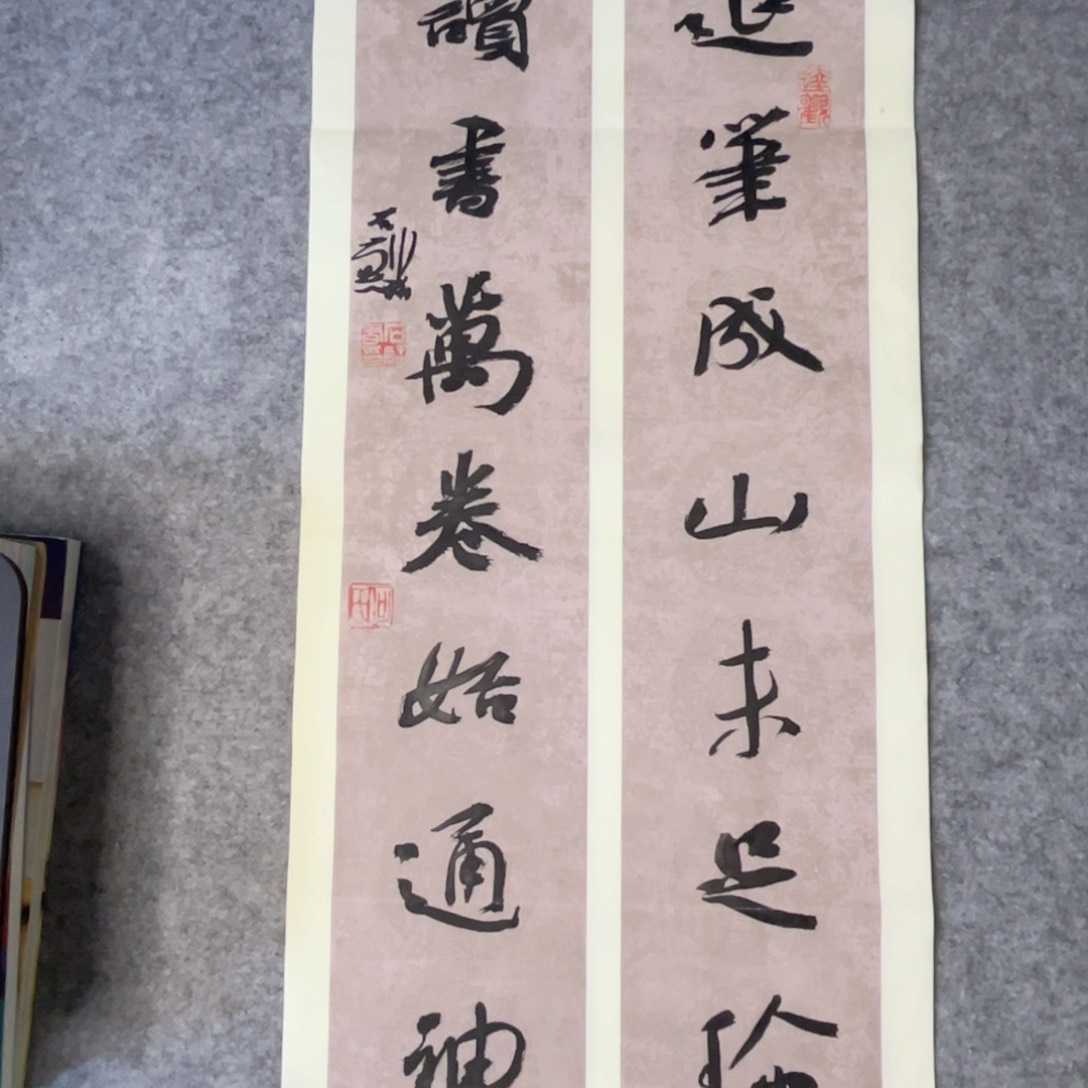 退筆成山未足珍
達觀
讀書萬卷始通神